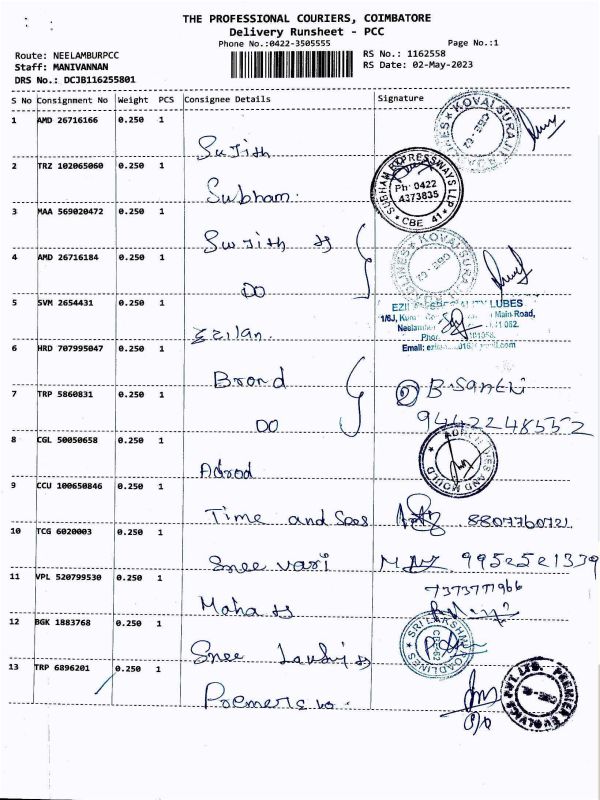 THE PROFESSIONAL COURIERS, COIMBATORE
Delivery Runsheet - PCC
Phone No.:0422-3505555
Page No.:1
Route: NEELAMBURPCC
RS No.: 1162558
Staff: MANIVANNAN
RS Date: 02-May-2023
DRS No.: DCJB116255801
S No Consignment No Weight PCS Consignee Details Signature
1 AMD 26716166 0.250 1 Sujith
2 TRZ 102065060 0.250 1 Subham.
SUBHAM EXPRESSWAYS LLP
Ph: 0422
4373835
* CBE 41 *
3 MAA 569020472 0.250 1 Surjith
4 AMD 26716184 0.250 1 DO
5 SVM 2654431 0.250 1 Ezilan.
LUBES
Main Road,
6 HRD 707995047 0.250 1 Brond
B. Santhi
7 TRP 5860831 0.250 1 DO
9442248552
8 CGL 50050658 0.250 1 Adrod
AND MOULD
9 CCU 100650846 0.250 1 Time and Sees 8807760721
10 TCG 6020003 0.250 1 Sree vari 9952521339
11 VPL 520799530 0.250 1 Maha
7373771966
12 BGK 1883768 0.250 1 Sree
13 TRP 6896201 0.250 1
PREMIER EVOLVICS PVT. LTD.